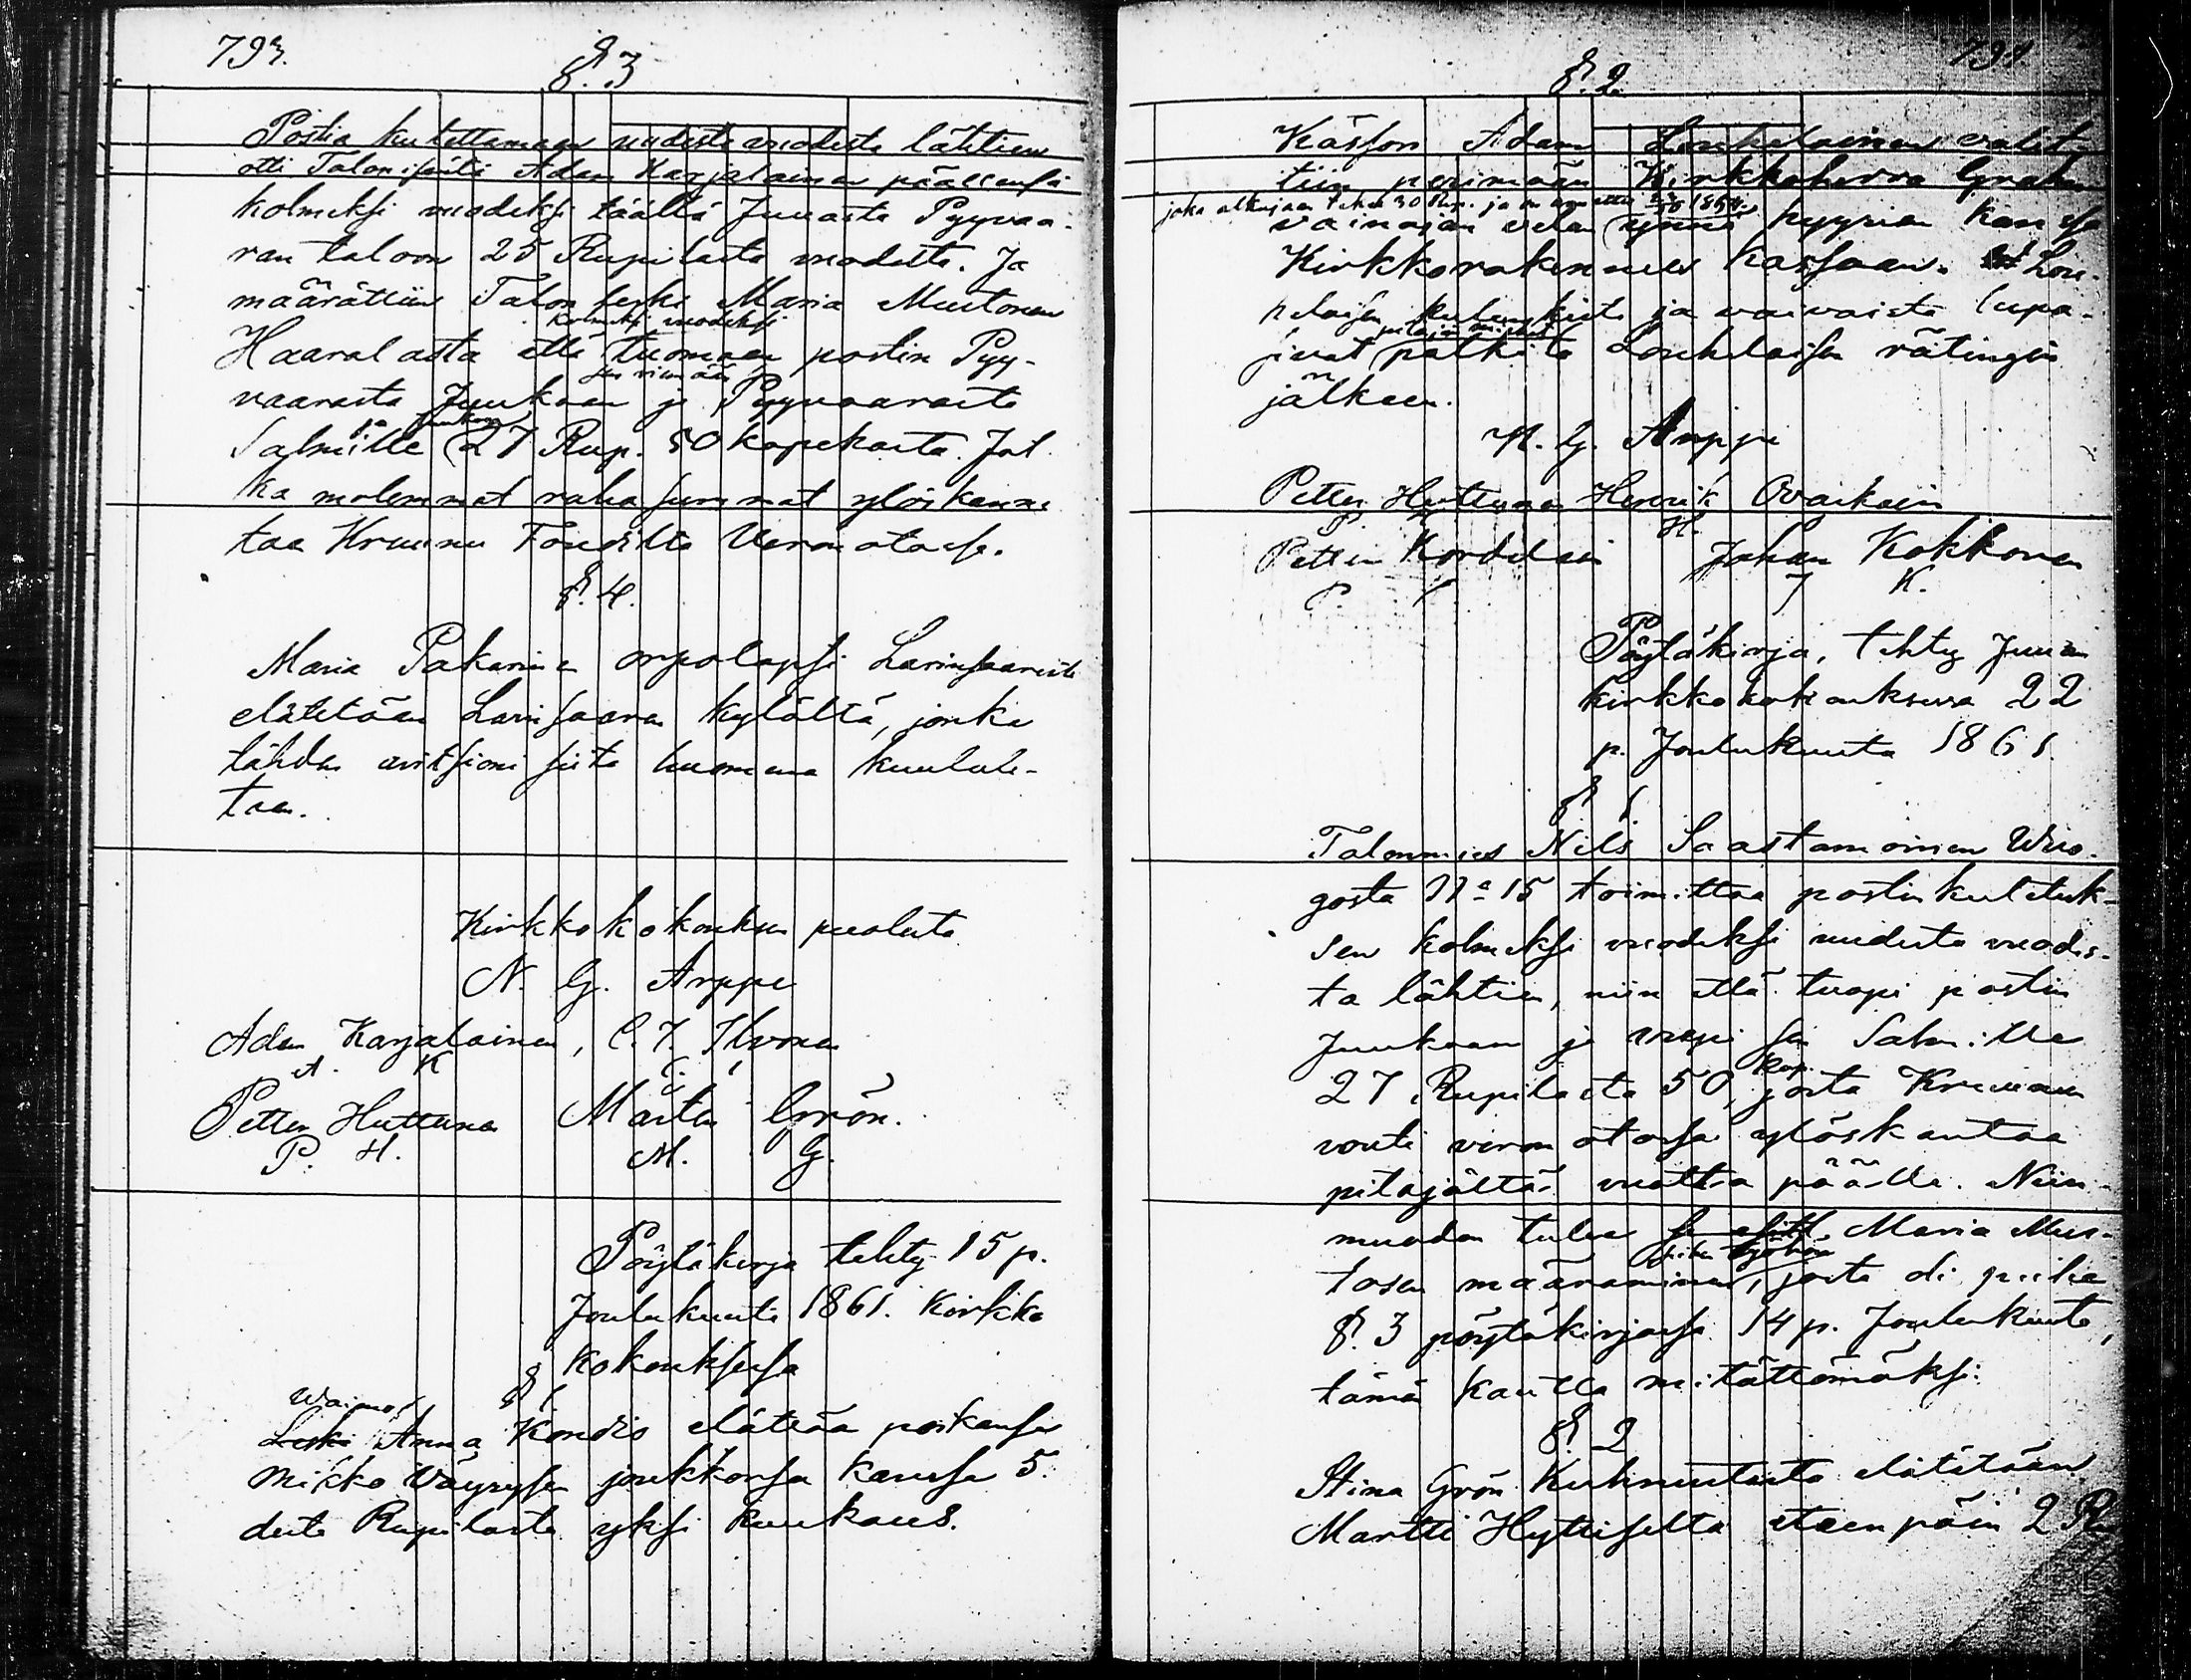 793.
§. 3
Postia kuletettamaan uudesta vuodesta lähtien
otti Talonisäntä Adam Karjalainen päällensä
kolmeksi vuodeksi täältä Juuasta Pyyvaa-
ran taloon 25 Rupilasta vuodelta. Ja
määrättiin Talon leski Maria Mustonen
kolmeksi vuodeksi
Haaralasta että tuomaan postin Pyy-
sen viemään
vaarasta Juukaan ja Pyyvaarasta
ja Juukaan
Salmille 27 Rup. 50 kopekasta. Jot
ka molemmat raha summat ylöskanne
taa Kruunu Foudilta Veron otossa.
§. 4.
Maria Pakarinen orpolapsi Larinsaaresta
elätetään Larinsaaren kylältä, jonka
tähden auktsioni siitä huomena kuulute-
taan.
Kirkkokokouksen puolesta
N. G. Arppe
Adam Karjalainen, C. J. Ilvonen
A. K C. I
Petter Huttunen Mårten Grön.
P. H. M. G.
Pöytäkirja tehty 15 p.
Joulukuuta 1861. Kirkko
kokouksessa
§ 1
Waimo
Leski Anna Kondis elättää poikansa
Mikko Väyrysen joukkonsa kanssa 5.
desta Rupilasta yksi kuukaus.
794
§. 2.
Kässöri Adam Louhelainen valit-
tiin perimään Kirkkoherra Grahn
joka alkujaan tehee 30 Rup. ja on annettu 1854
vainajan velan ynnä hyyrien kanssa
Kirkkorakennus kassaan. Lou-
helaisen kulungista ja vaivoista lupa-
pitäjän miehet
sivat palkita Louhelaisen rätingin
jälkeen.
N. G. Arppe
Petter Huttunen Henrik Ovaskain
P. H.
Petter Kordelain Johan Kokkonen
P. J K.
Pöytäkirja, tehty Juuan
kirkkokokouksessa 22
p. Joulukuuta 1861.
§ 1
Talonmies Nils Saastamoinen Wuo-
gosta No 15 toimittaa postin kuletuk-
sen kolmeksi vuodeksi uudesta vuodes-
ta lähtien, niin että tuopi postin
Juukaan ja viepi sen Salmille
kop.
27 Rupilasta 50, josta Kruunun
vouti veron otossa ylöskantaa
pitäjältä vuotta päälle. Niin
muodon tulee Maria Mus-
siihen työhön
tosen määrääminen, josta oli puhe
§. 3 pöytäkirjassa 14 p. Joulukuuta,
tämän kautta mitättömäksi.
§. 2
Stina Grön Kuhnustasta elätetään
Martti Hyttiseltä eteenpäin 2 Rup